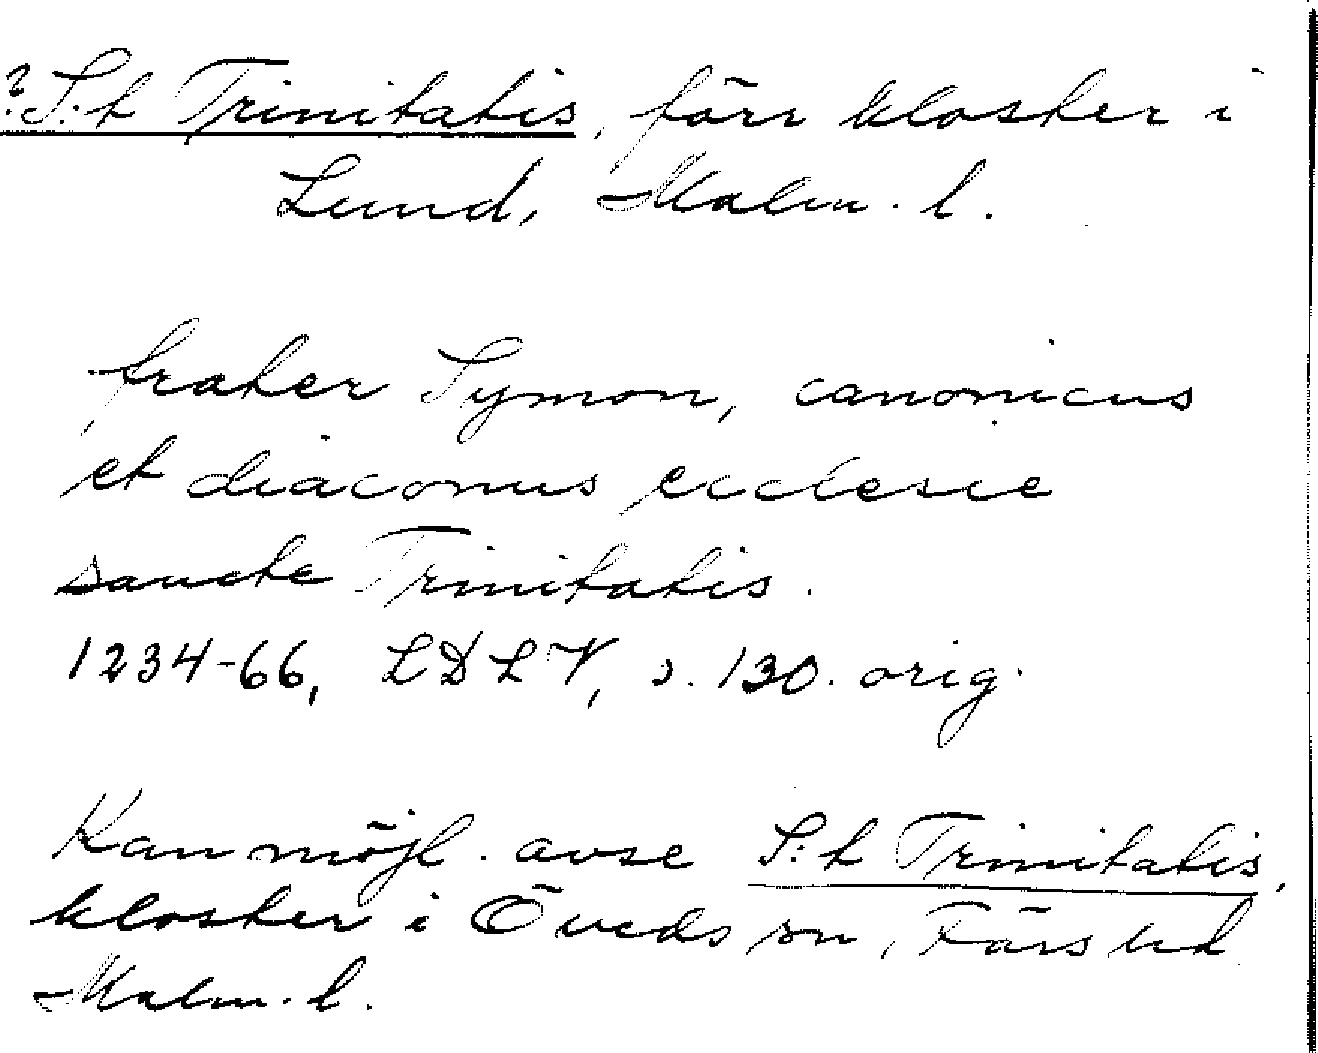 ? S:t Trinitatis, förr kloster i
Lund, Malm. l.
frater Symon, canonicus
et diaconus ecclesie
sancte Trinitatis.
1234-66, LDLV, s. 130. orig.
Kan möjl. avse S:t Trinitatis,
kloster i Öveds sn, Färs hd
Malm. l.